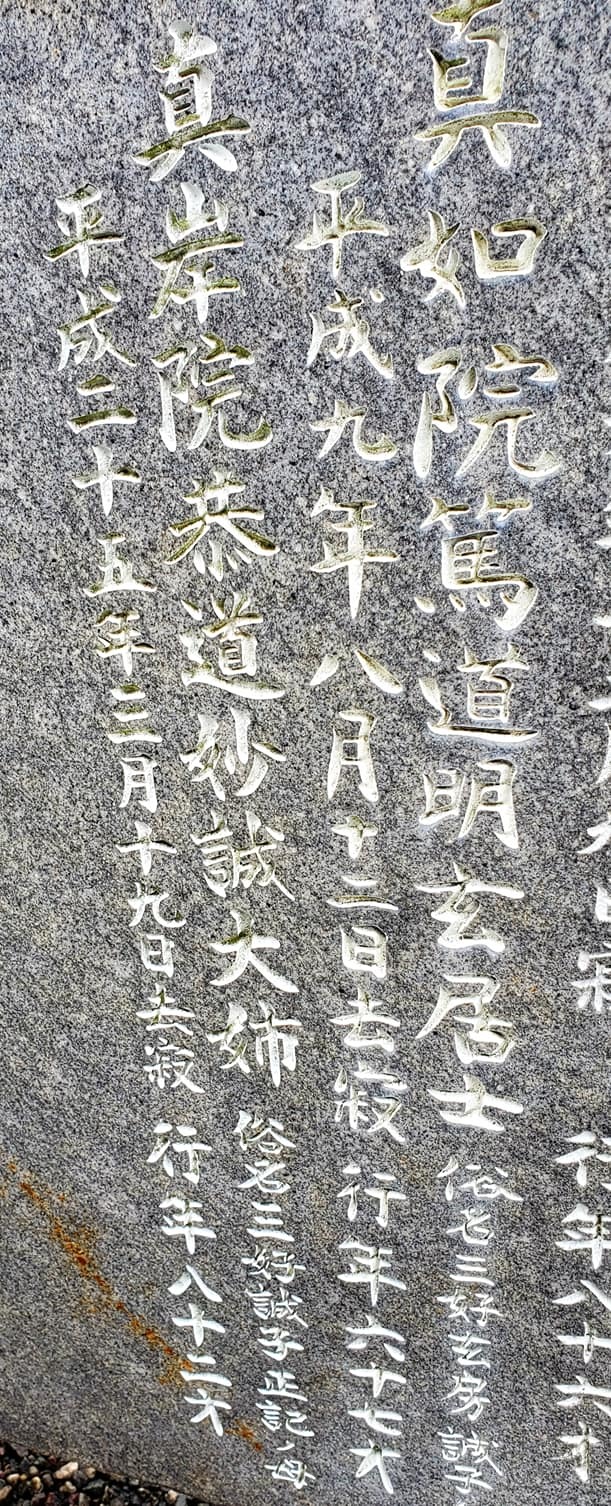 行年八十六才
真如院篤道明玄居士 俗名三好玄房 誠子
平成九年八月十二日去寂 行年六十七才
真岸院恭道妙誠大姉 俗名三好誠子 正記ノ母
平成二十五年三月十九日去寂 行年八十二才